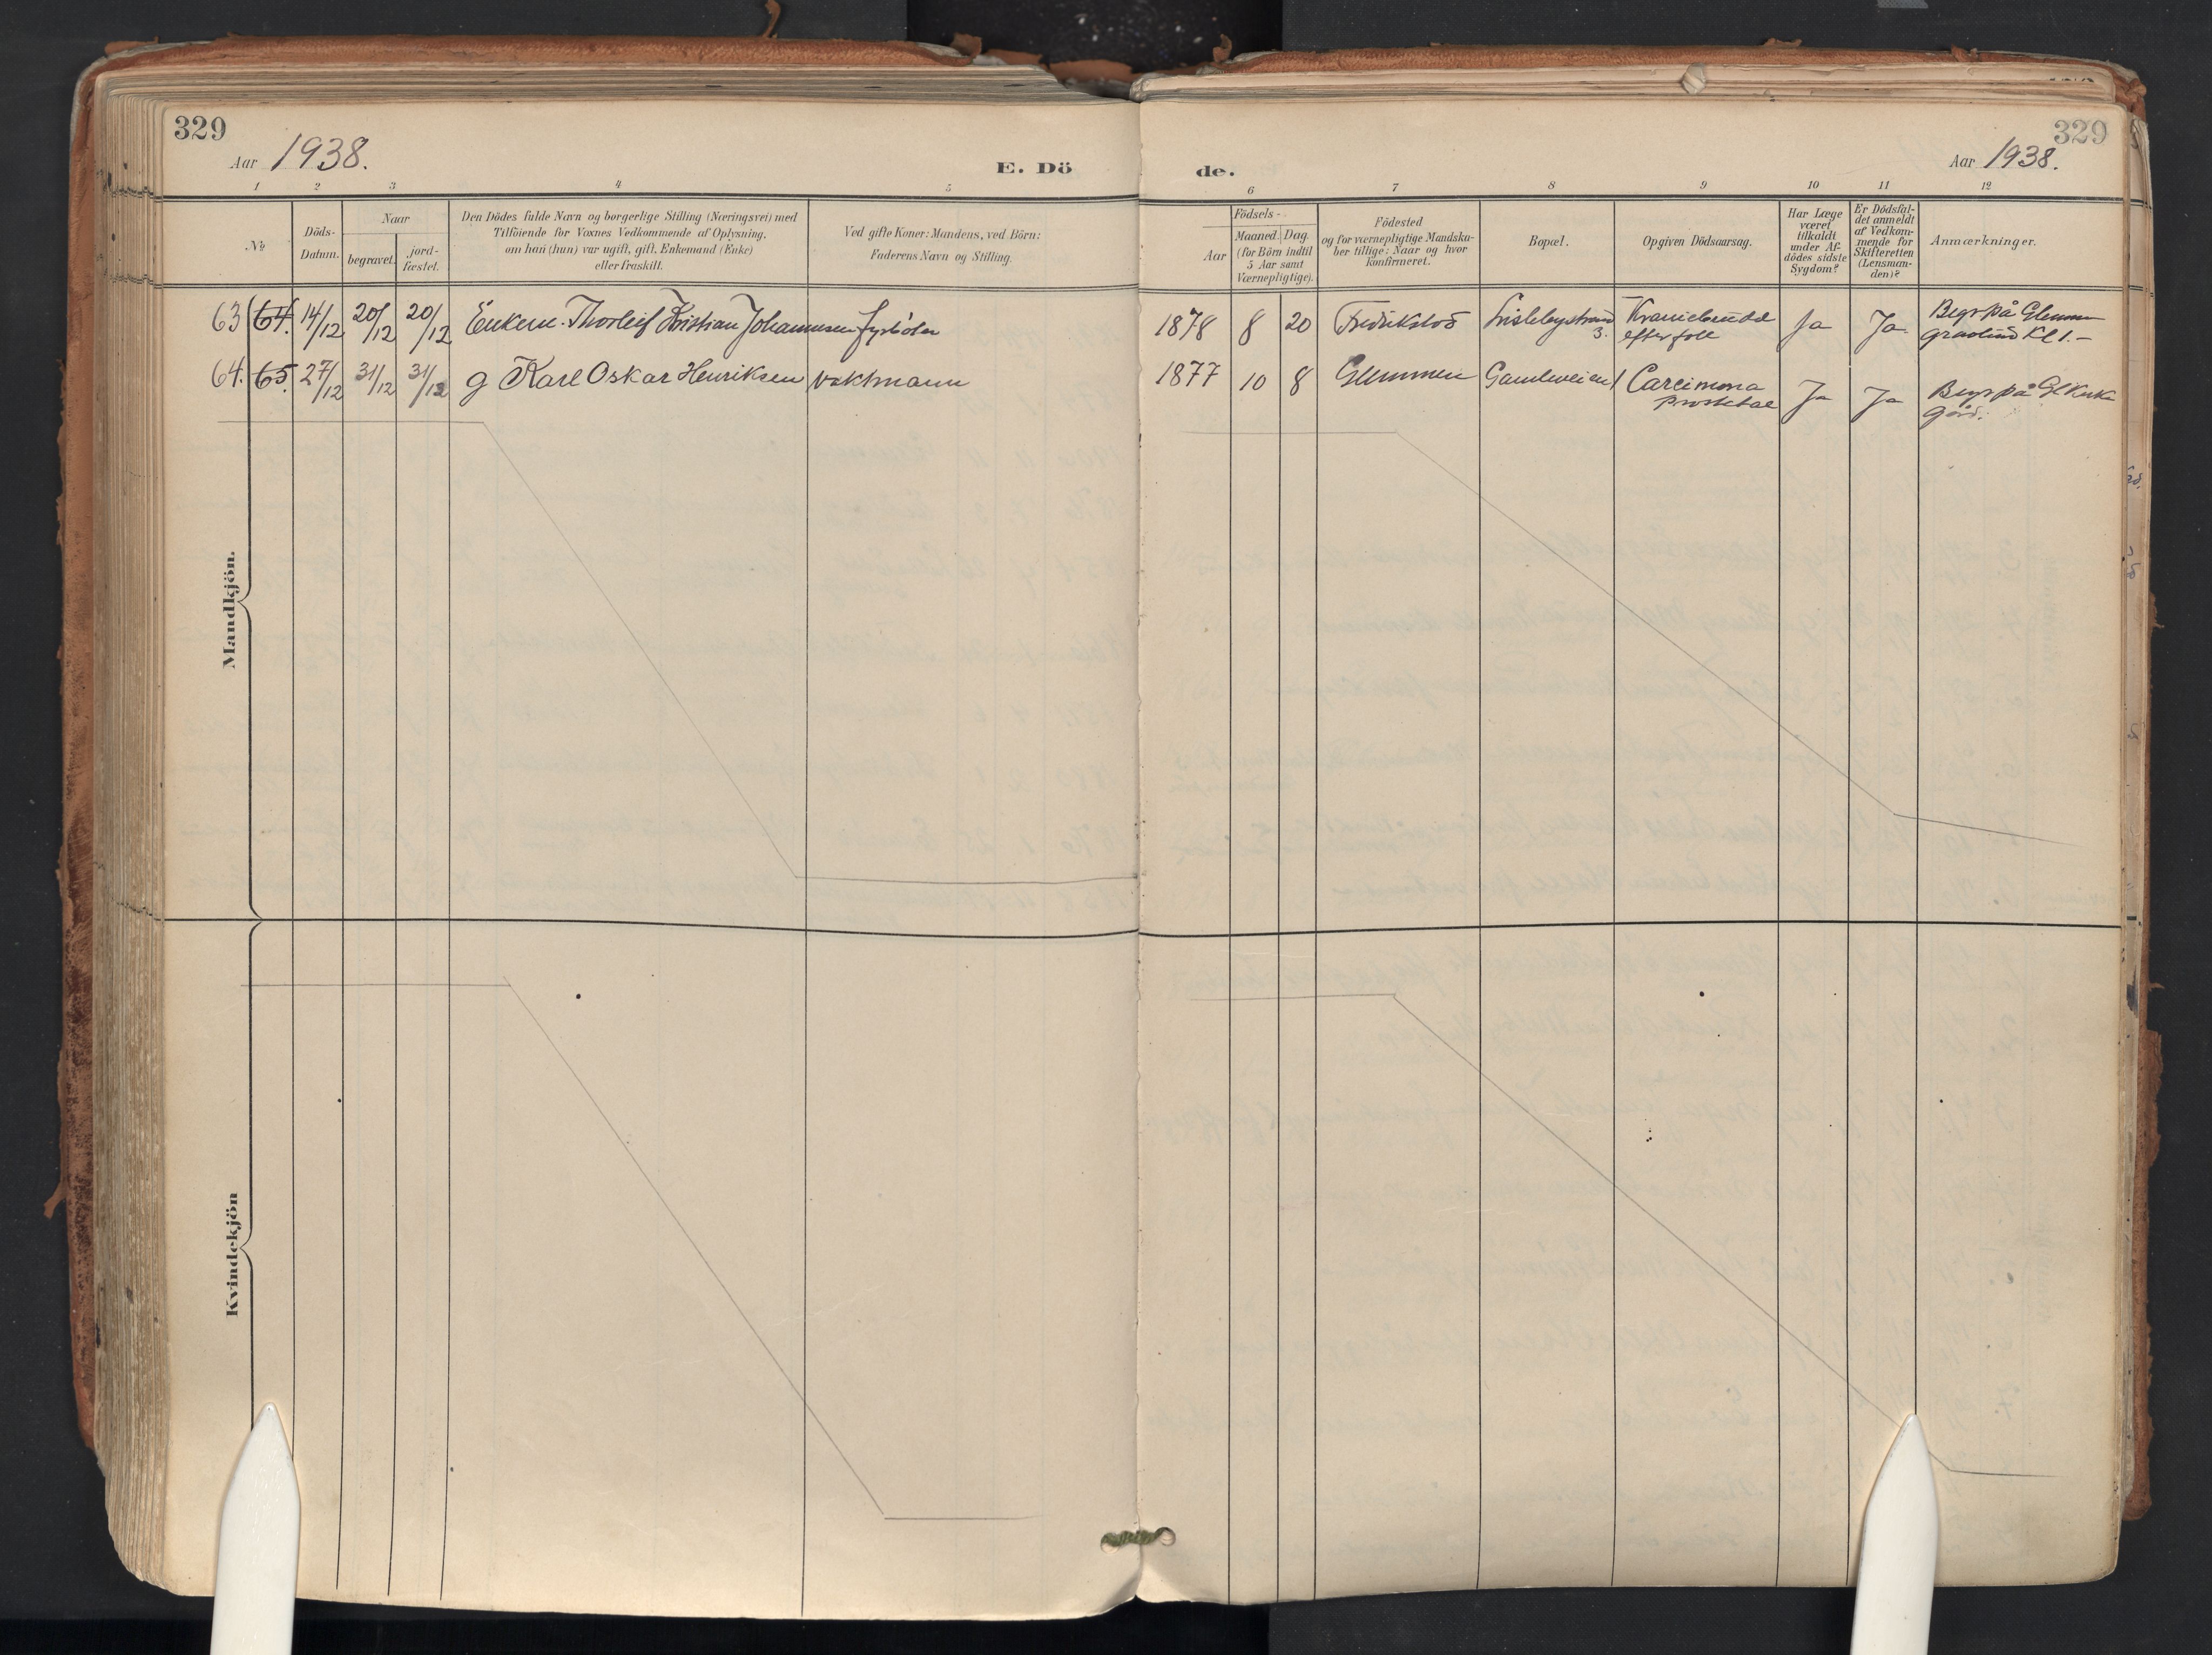 329
Aar 1938.
E. Dö
de.
329
Aar 1938.
1 2 3 4 5 6 7 8 9 10 11 12
No
Döds-
Datum.
Naar
begravet.
jord-
fæstet.
Den Dödes fulde Navn og borgerlige Stilling (Næringsvei) med
Tilföiende for Voxnes Vedkommende af Oplysning,
om han (hun) var ugift, gift, Enkemand (Enke)
eller fraskilt.
Ved gifte Koner: Mandens, ved Börn:
Faderens Navn og Stilling.
Födsels-
Aar
Maaned. Dag.
(for Börn indtil
5 Aar samt
Værnepligtige).
Födested
og for værnepligtige Mandska-
ber tillige: Naar og hvor
konfirmeret.
Bopæl.
Opgiven Dödsaarsag.
Har Læge
været
tilkaldt
under Af-
dödes sidste
Sygdom?
Er Dödsfal-
det anmeldt
af Vedkom-
mende for
Skifteretten
(Lensman-
den)?
Anmærkninger.
63 64. 14/12 20/12 20/12 Enkem. Thorleif Kristian Johannesen fyrböter 1878 8 20 Fredrikstad Lislebystrand 3. Kraniebrudd efter fall Ja Ja Begr på Glemmen gravlund Kl 1.—
64. 65. 27/12 31/12 31/12 g Karl Oskar Henriksen vaktmann 1877 10 8 Glemmen Gamleveien 1 Carcinoma prostatae Ja Ja Begr på Gl Kirke gård.
Mandkjön.
Kvindekjön